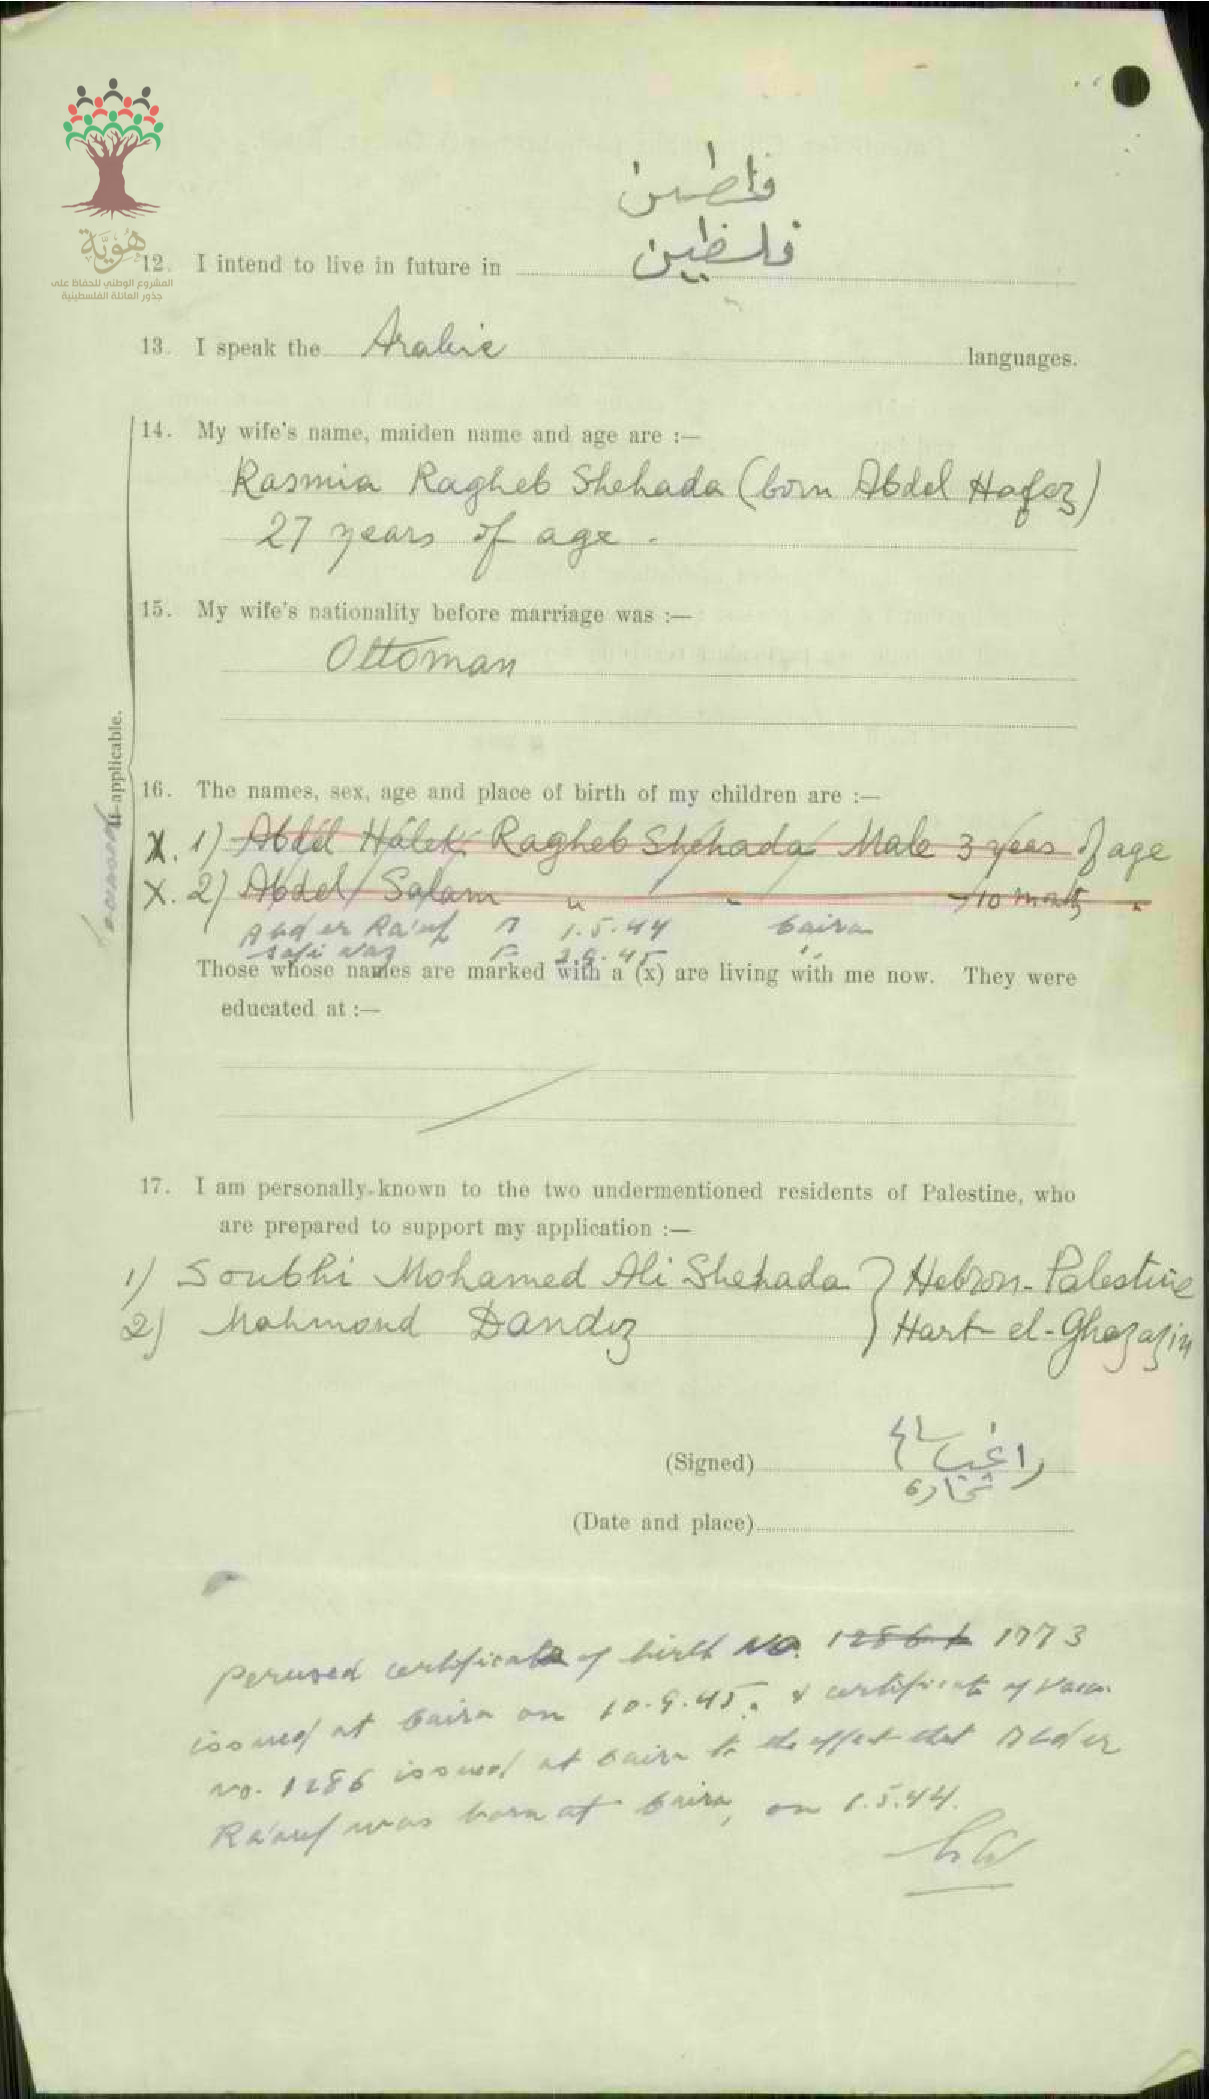 هُوِيَّة
المشروع الوطني للحفاظ على
جذور العائلة الفلسطينية
فلطين
فلسطين
12. I intend to live in future in
13. I speak the Arabic languages.
14. My wife's name, maiden name and age are :—
Rasmia Ragheb Shehada (born Abdel Hafez)
27 years of age.
15. My wife's nationality before marriage was :—
Ottoman
If applicable.
16. The names, sex, age and place of birth of my children are :—
X. 1) Abdel Halek Ragheb Shehada Male 3 years of age
X. 2) Abdel Salam " " 10 months "
Abd er Ra'uf 1.5.44 Cairo
F 2.9.45 "
Those whose names are marked with a (x) are living with me now. They were
educated at :—
17. I am personally known to the two undermentioned residents of Palestine, who
are prepared to support my application :—
1) Soubhi Mohamed Ali Shehada } Hebron-Palestine
2) Mahmoud Dandiz } Hart el-Ghazazin
(Signed) راغب
شحادة
(Date and place)
perused certificate of birth No. 1286 1773
issued at Cairo on 10.9.45. & certificate of Vacc.
no. 1286 issued at Cairo to the effect that Abd er
Ra'auf was born at Cairo, on 1.5.44.